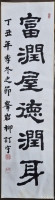 富潤屋德潤身
丁丑年季冬之節